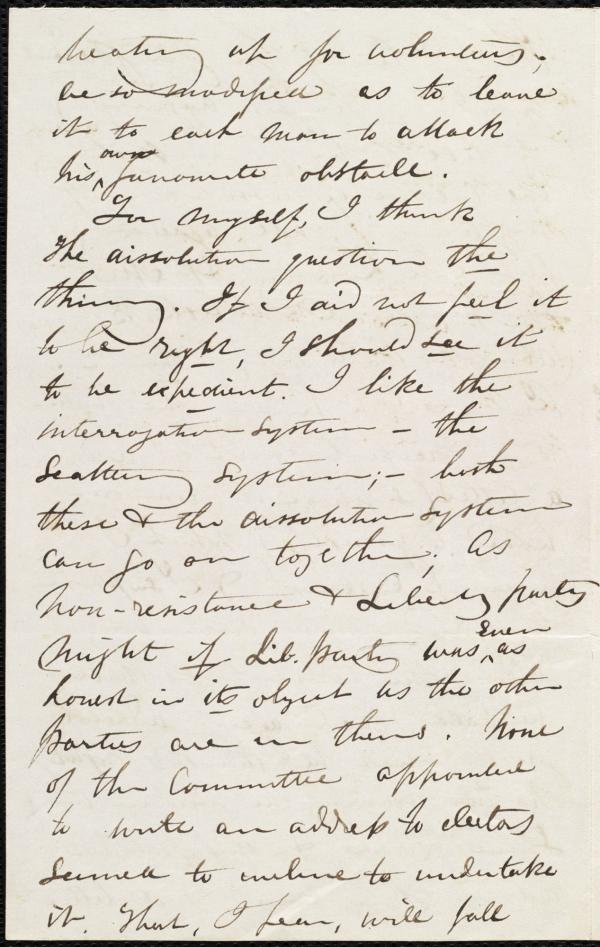 beating up for volunteers,
be so modified as to leave
it to each man to attack
his own favourite obstacle.
For myself, I think
the dissolution question the
thing. If I did not feel it
to be right, I should see it
to be expedient. I like the
interrogation system – the
scattering system; – both
these & the dissolution system
can go on together; as
non-resistance & Liberty party
might if Lib. party was even as
honest in its object as the other
parties are in theirs. None
of the Committee appointed
to write an address to electors
seemed to incline to undertake
it. That, I fear, will fall